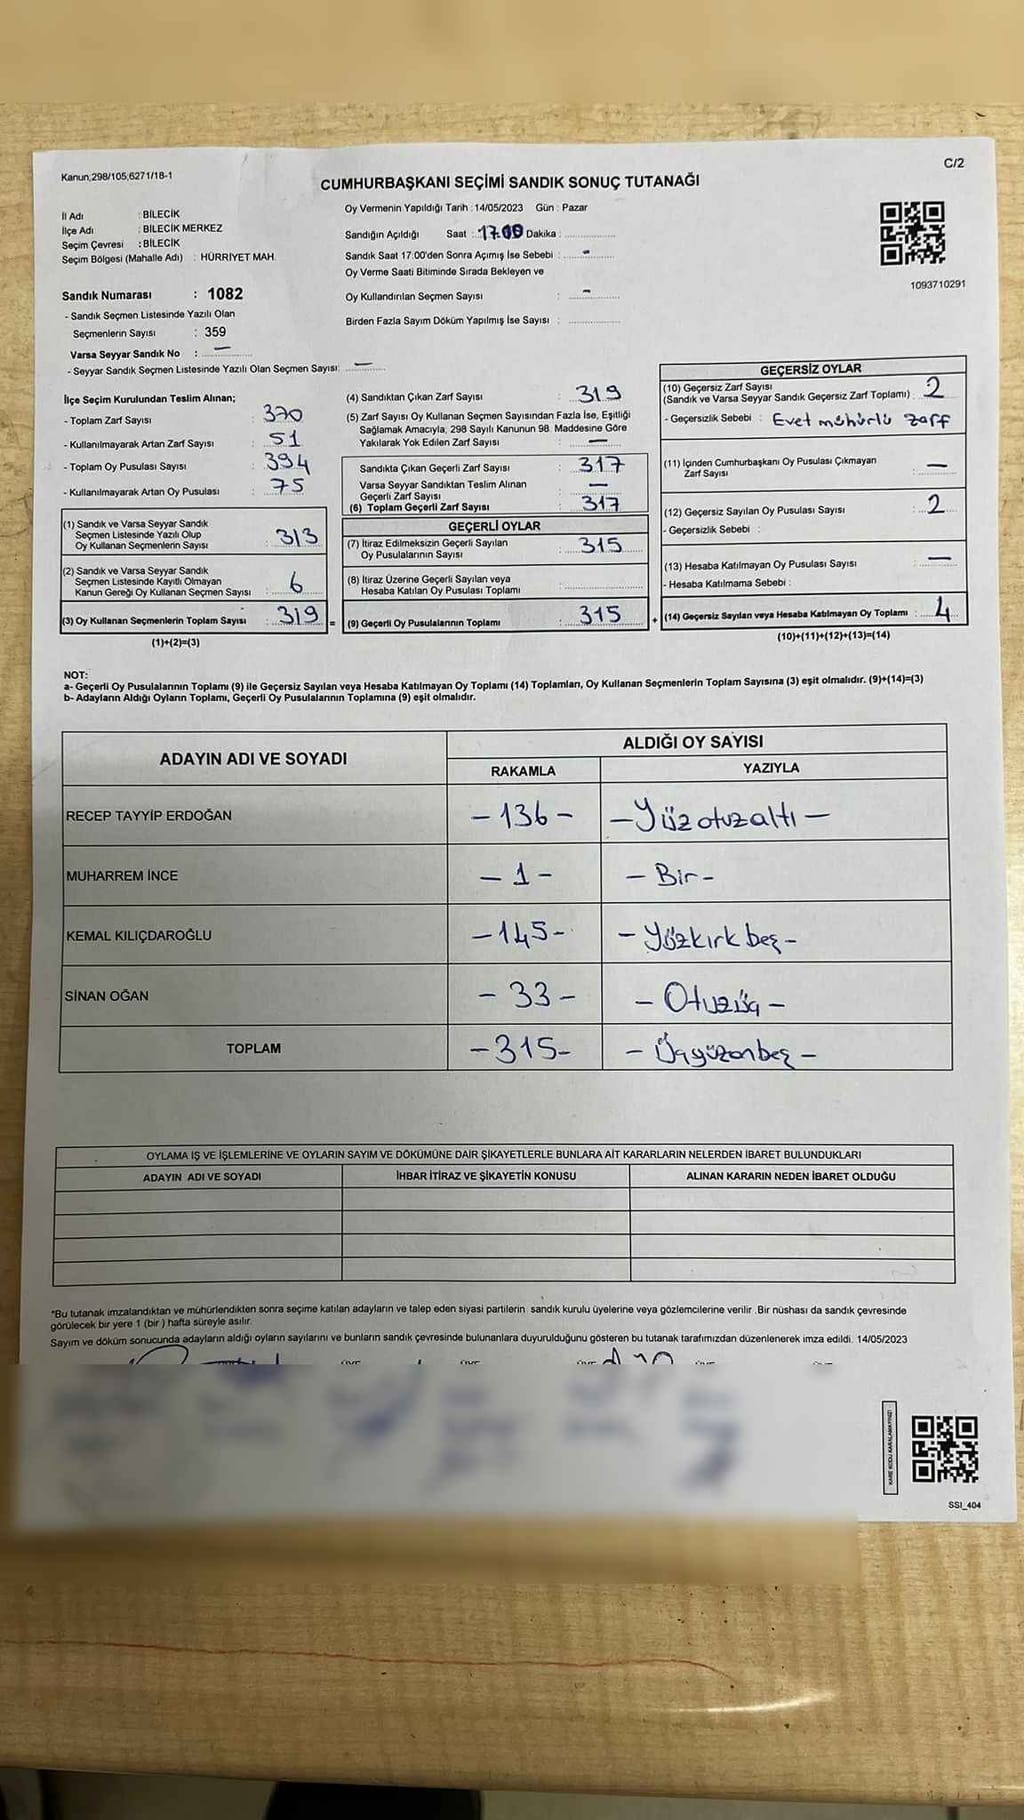 C/2
Kanun,298/105,6271/18-1
CUMHURBAŞKANI SEÇİMİ SANDIK SONUÇ TUTANAĞI
İl Adı : BİLECİK
İlçe Adı : BİLECİK MERKEZ
Seçim Çevresi : BİLECİK
Seçim Bölgesi (Mahalle Adı) : HÜRRİYET MAH.
Sandık Numarası : 1082
- Sandık Seçmen Listesinde Yazılı Olan
Seçmenlerin Sayısı : 359
Varsa Seyyar Sandık No : —
- Seyyar Sandık Seçmen Listesinde Yazılı Olan Seçmen Sayısı: —
Oy Vermenin Yapıldığı Tarih : 14/05/2023 Gün : Pazar
Sandığın Açıldığı Saat : 17.00 Dakika :
Sandık Saat 17:00'den Sonra Açımış İse Sebebi : -
Oy Verme Saati Bitiminde Sırada Bekleyen ve
Oy Kullandırılan Seçmen Sayısı : -
Birden Fazla Sayım Döküm Yapılmış İse Sayısı :
1093710291
İlçe Seçim Kurulundan Teslim Alınan;
- Toplam Zarf Sayısı : 370
- Kullanılmayarak Artan Zarf Sayısı : 51
- Toplam Oy Pusulası Sayısı : 394
- Kullanılmayarak Artan Oy Pusulası : 75
(1) Sandık ve Varsa Seyyar Sandık
Seçmen Listesinde Yazılı Olup
Oy Kullanan Seçmenlerin Sayısı : 313
(2) Sandık ve Varsa Seyyar Sandık
Seçmen Listesinde Kayıtlı Olmayan
Kanun Gereği Oy Kullanan Seçmen Sayısı : 6
(3) Oy Kullanan Seçmenlerin Toplam Sayısı : 319 =
(1)+(2)=(3)
(4) Sandıktan Çıkan Zarf Sayısı : 319
(5) Zarf Sayısı Oy Kullanan Seçmen Sayısından Fazla İse, Eşitliği
Sağlamak Amacıyla, 298 Sayılı Kanunun 98. Maddesine Göre
Yakılarak Yok Edilen Zarf Sayısı : —
Sandıkta Çıkan Geçerli Zarf Sayısı : 317
Varsa Seyyar Sandıktan Teslim Alınan
Geçerli Zarf Sayısı : —
(6) Toplam Geçerli Zarf Sayısı : 317
GEÇERLİ OYLAR
(7) İtiraz Edilmeksizin Geçerli Sayılan
Oy Pusulalarının Sayısı : 315
(8) İtiraz Üzerine Geçerli Sayılan veya
Hesaba Katılan Oy Pusulası Toplamı :
(9) Geçerli Oy Pusulalarının Toplamı : 315 +
GEÇERSİZ OYLAR
(10) Geçersiz Zarf Sayısı
(Sandık ve Varsa Seyyar Sandık Geçersiz Zarf Toplamı) : 2
- Geçersizlik Sebebi : Evet mühürlü zarf
(11) İçinden Cumhurbaşkanı Oy Pusulası Çıkmayan
Zarf Sayısı : —
(12) Geçersiz Sayılan Oy Pusulası Sayısı : 2
- Geçersizlik Sebebi :
(13) Hesaba Katılmayan Oy Pusulası Sayısı : —
- Hesaba Katılmama Sebebi :
(14) Geçersiz Sayılan veya Hesaba Katılmayan Oy Toplamı : 4
(10)+(11)+(12)+(13)=(14)
NOT:
a- Geçerli Oy Pusulalarının Toplamı (9) ile Geçersiz Sayılan veya Hesaba Katılmayan Oy Toplamı (14) Toplamları, Oy Kullanan Seçmenlerin Toplam Sayısına (3) eşit olmalıdır. (9)+(14)=(3)
b- Adayların Aldığı Oyların Toplamı, Geçerli Oy Pusulalarının Toplamına (9) eşit olmalıdır.
ADAYIN ADI VE SOYADI ALDIĞI OY SAYISI
RAKAMLA YAZIYLA
RECEP TAYYİP ERDOĞAN - 136 - - Yüzotuzaltı -
MUHARREM İNCE - 1 - - Bir -
KEMAL KILIÇDAROĞLU - 145 - - Yüzkırkbeş -
SİNAN OĞAN - 33 - - Otuzüç -
TOPLAM - 315 - - Üçyüzonbeş -
OYLAMA İŞ VE İŞLEMLERİNE VE OYLARIN SAYIM VE DÖKÜMÜNE DAİR ŞİKAYETLERLE BUNLARA AİT KARARLARIN NELERDEN İBARET BULUNDUKLARI
ADAYIN ADI VE SOYADI İHBAR İTİRAZ VE ŞİKAYETİN KONUSU ALINAN KARARIN NEDEN İBARET OLDUĞU
*Bu tutanak imzalandıktan ve mühürlendikten sonra seçime katılan adayların ve talep eden siyasi partilerin sandık kurulu üyelerine veya gözlemcilerine verilir. Bir nüshası da sandık çevresinde
görülecek bir yere 1 (bir) hafta süreyle asılır.
Sayım ve döküm sonucunda adayların aldığı oyların sayılarını ve bunların sandık çevresinde bulunanlara duyurulduğunu gösteren bu tutanak tarafımızdan düzenlenerek imza edildi. 14/05/2023
KARE KODU KARALAMAYINIZ!
SSI_404